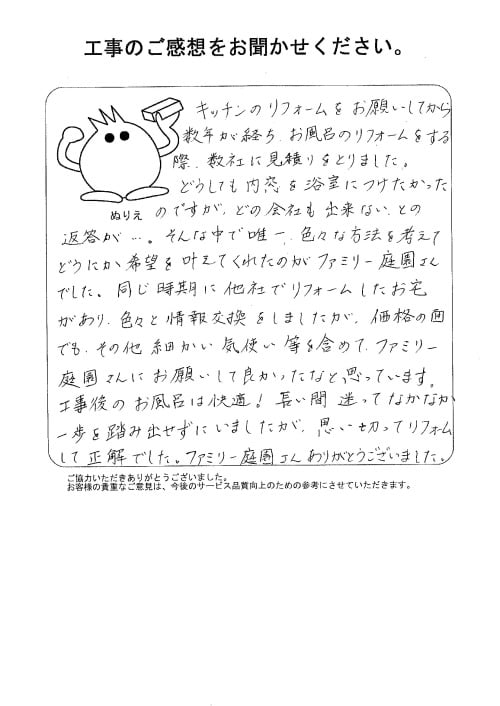 工事のご感想をお聞かせください。
キッチンのリフォームをお願いしてから
数年が経ち、お風呂のリフォームをする
際、数社に見積りをとりました。
どうしても内窓を浴室につけたかった
ぬりえ
のですが、どの会社も出来ない、との
返答が…。そんな中で唯一、色々な方法を考えて
どうにか希望を叶えてくれたのがファミリー庭園さん
でした。同じ時期に他社でリフォームしたお宅
があり、色々と情報交換をしましたが、価格の面
でも、その他細かい気使い等を含めて、ファミリー
庭園さんにお願いして良かったなと思っています。
工事後のお風呂は快適！長い間迷ってなかなか
一歩を踏み出せずにいましたが、思い切ってリフォーム
して正解でした。ファミリー庭園さんありがとうございました。
ご協力いただきありがとうございました。
お客様の貴重なご意見は、今後のサービス品質向上のための参考にさせていただきます。